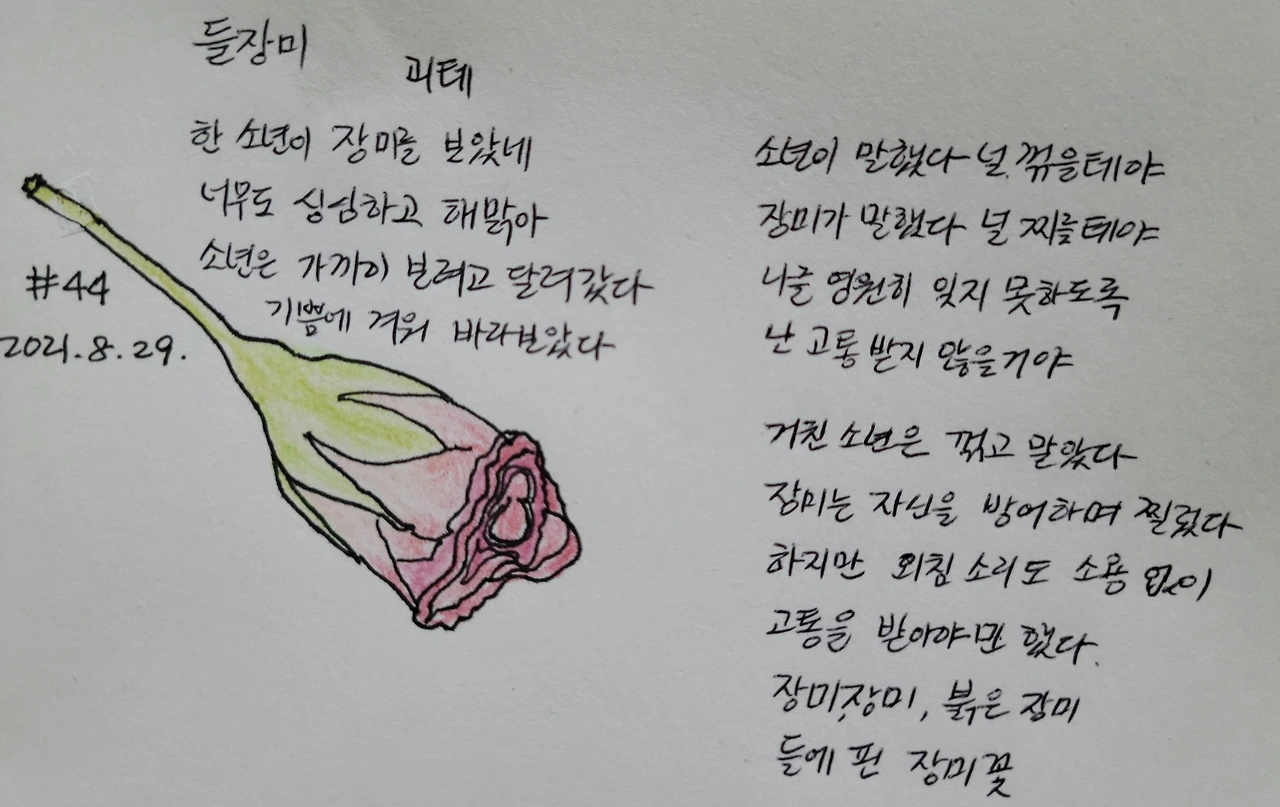 들장미
괴테
한 소년이 장미를 보았네
너무도 싱싱하고 해맑아
소년은 가까이 보려고 달려갔다
기쁨에 겨워 바라보았다
#44
2021. 8. 29.
소년이 말했다 널 꺾을테야
장미가 말했다 널 찌를테야
나를 영원히 잊지 못하도록
난 고통 받지 않을거야
거친 소년은 꺾고 말았다
장미는 자신을 방어하며 찔렀다
하지만 외침 소리도 소용 없이
고통을 받아야만 했다.
장미, 장미, 붉은 장미
들에 핀 장미꽃